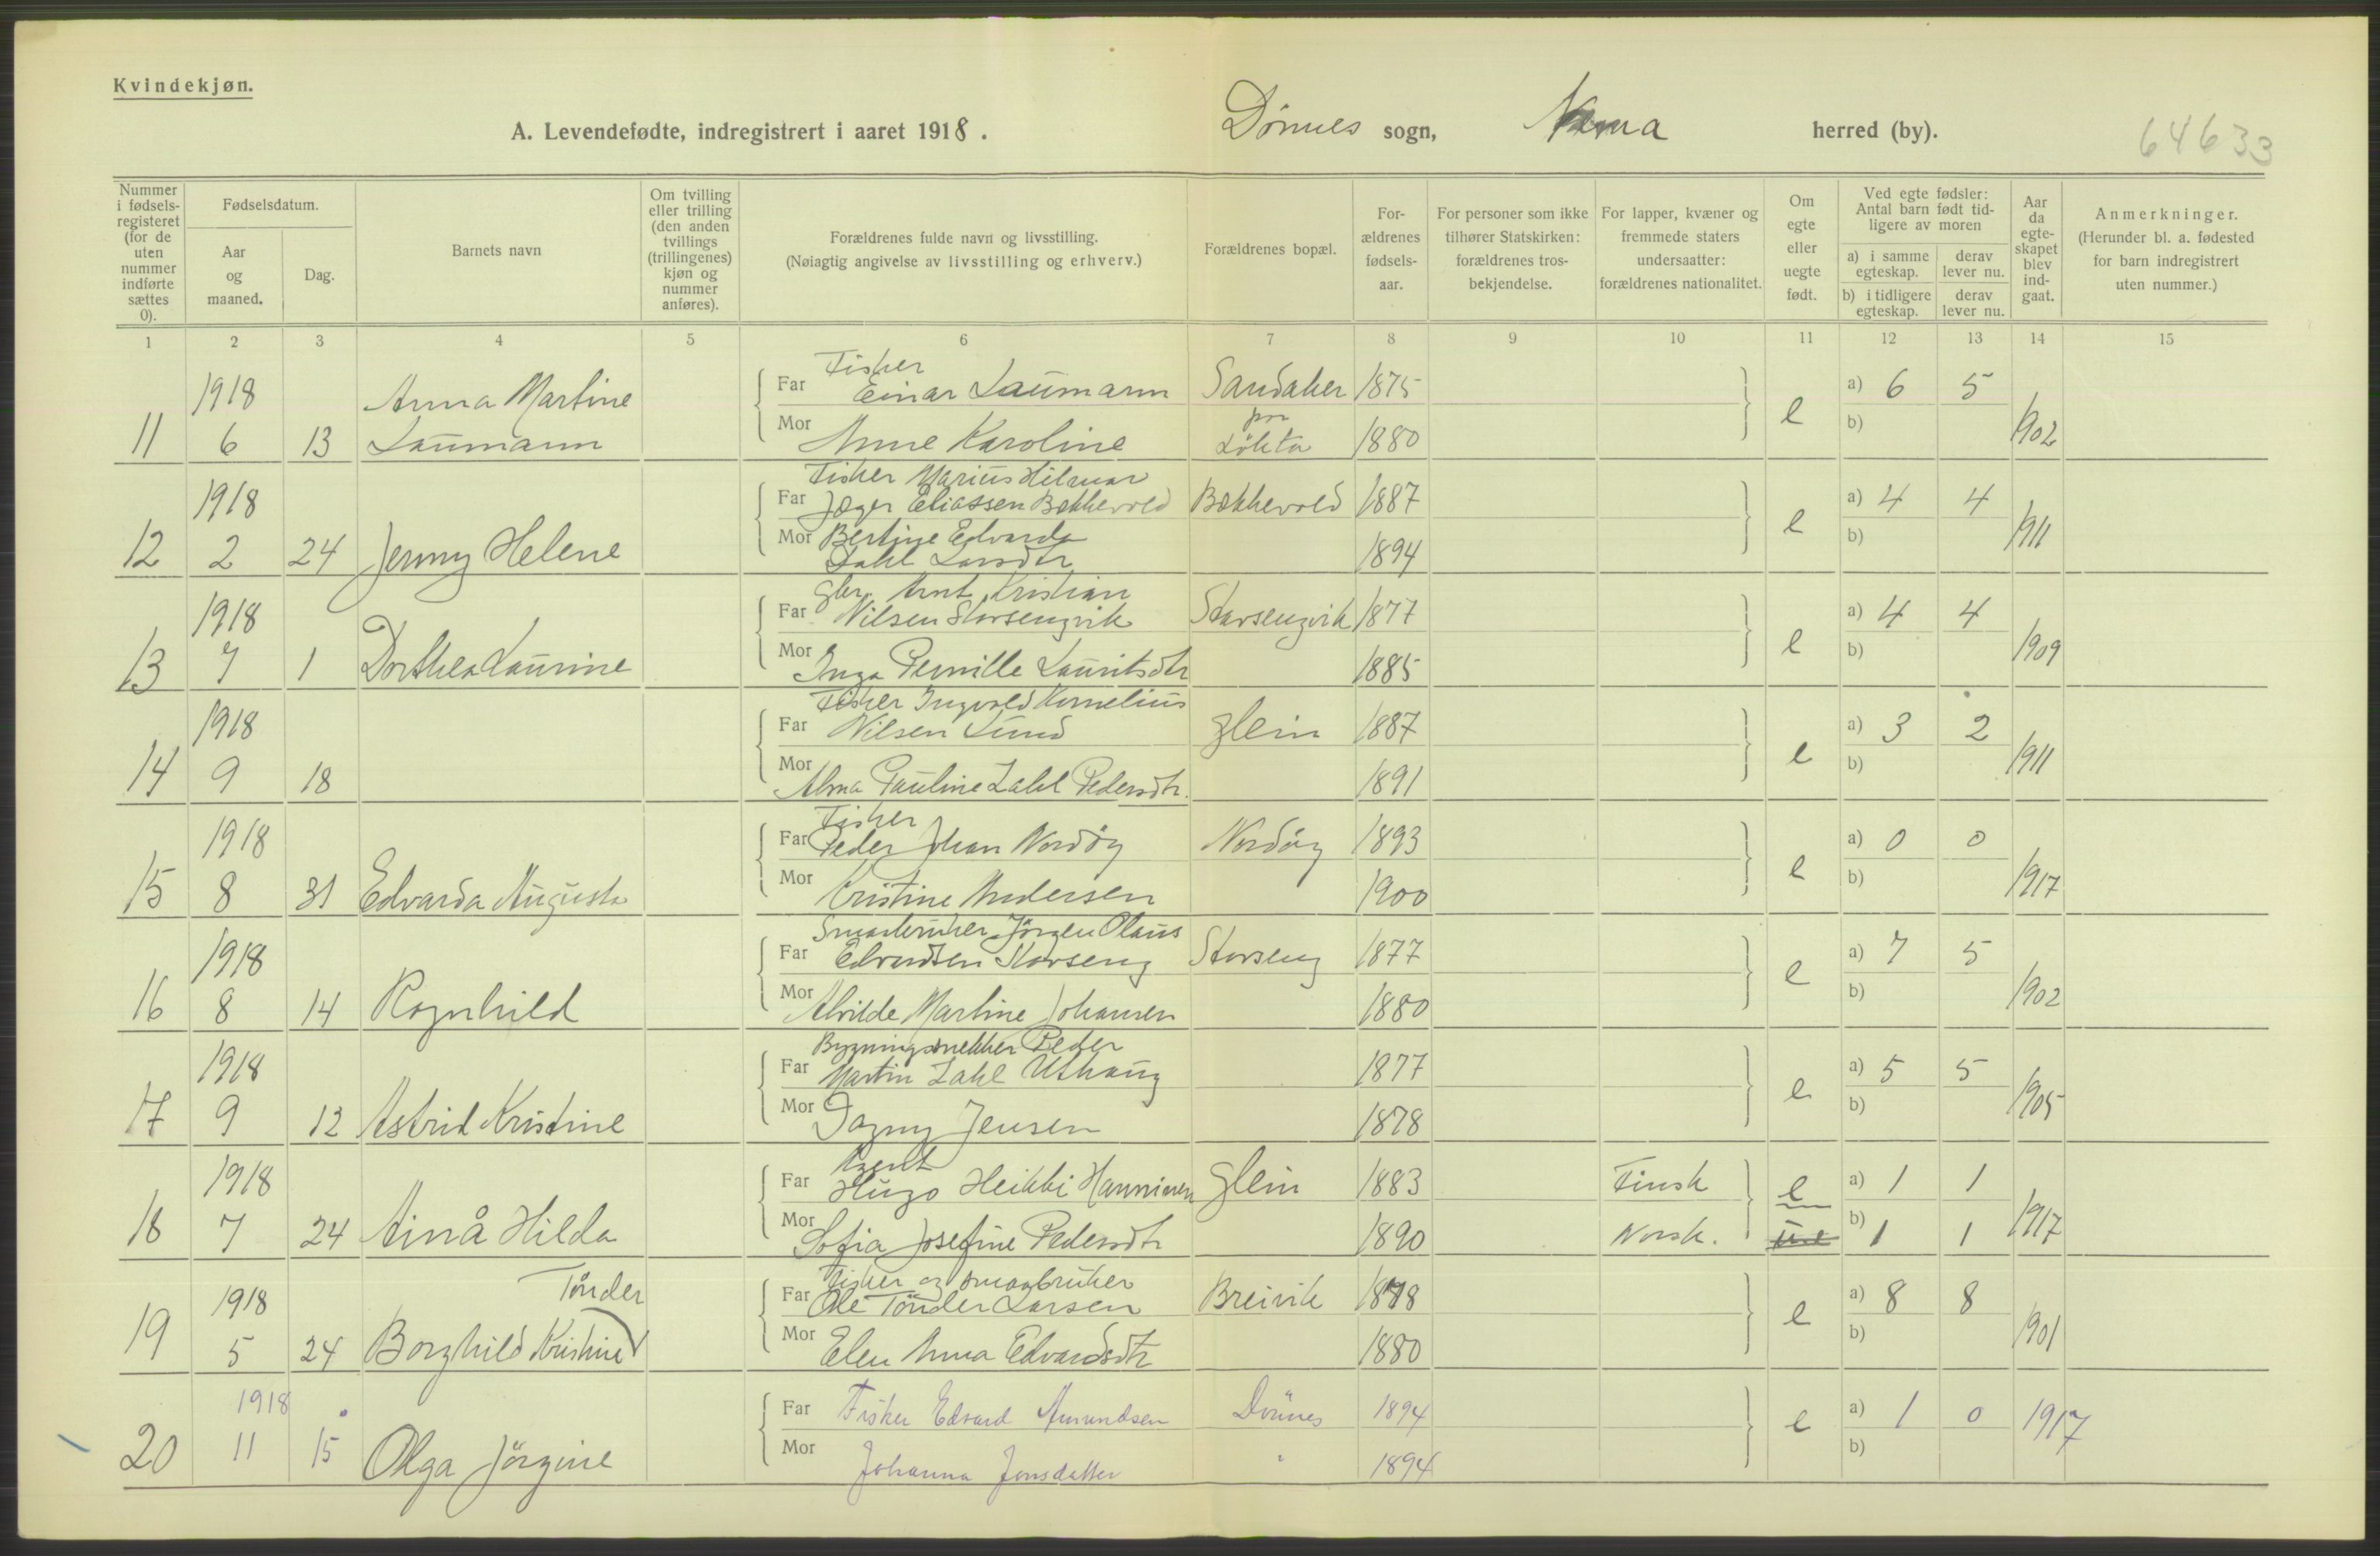 Kvindekjøn.
A. Levendefødte, indregistrert i aaret 1918.
Dønnes sogn,
herred (by).
64633
Nummer i fødsels-registeret (for de uten nummer indførte sættes 0).
Fødselsdatum.
Aar og maaned.
Dag.
Barnets navn
Om tvilling eller trilling (den anden tvillings (trillingenes) kjøn og nummer anføres).
Forældrenes fulde navn og livsstilling.
(Nøiagtig angivelse av livsstilling og erhverv.)
Forældrenes bopæl.
For-ældrenes fødsels-aar.
For personer som ikke tilhører Statskirken: forældrenes tros-bekjendelse.
For lapper, kvæner og fremmede staters undersaatter: forældrenes nationalitet.
Om egte eller uegte født.
Ved egte fødsler: Antal barn født tid-ligere av moren
a) i samme egteskap.
derav lever nu.
b) i tidligere egteskap.
derav lever nu.
Aar da egte-skapet blev ind-gaat.
Anmerkninger.
(Herunder bl. a. fødested for barn indregistrert uten nummer.)
1 2 3 4 5 6 7 8 9 10 11 12 13 14 15
Fisher
1918 Anna Martine Far Einar Laumann Sandaker 1875 a) 6 5
11 6 13 Laumann Mor Anne Karoline paa Løkta 1880 e b) 1902
Fisker Marius Hilmar
1918 Far Jæger Eliassen Bækkevold Bækkevold 1887 a) 4 4
12 2 24 Jenny Helene Mor Bertine Edvarda e b) 1911
Zahl Larsdtr 1894
Gbr. Arnt Kristian
1918 Far Nilsen Storsengvik Storsengvik 1877 a) 4 4
13 7 1 Dorthea Laurine Mor Inga Pernille Lauritsdtr 1885 e b) 1909
Fisker Ingvald Kornelius
1918 Far Nilsen Lund Glein 1887 a) 3 2
14 9 18 Mor Alma Pauline Zahl Pedersdtr. 1891 e b) 1911
Fisker
1918 Far Peder Johan Nordöy Nordöy 1893 a) 0 0
15 8 31 Edvarda Augusta Mor Kristine Andersen 1900 e b) 1917
Smaabruker Jörgen Olaus
1918 Far Edvardsen Storseng Storseng 1877 a) 7 5
16 8 14 Ragnhild Mor Alvilde Martine Johansen 1880 e b) 1902
Bygningssnekker Peder
1918 Far Martin Zahl Uthaug 1877 a) 5 5
17 9 12 Astrid Kristine Mor Dagny Jensen 1878 e b) 1905
Agent
1918 Far Hugo Heikki Hanninen Glein 1883 Finsk e a) 1 1
18 7 24 Ainå Hilda Mor Sofia Josefine Pedersdtr 1890 Norsk. b) 1 1 1917
Tönder Fisker og smaabruker
1918 Far Ole Tönder Larsen Breivik 1878 a) 8 8
19 5 24 Borghild Kristine Mor Elen Anna Edvardsdtr 1880 e b) 1901
1918 Far Fisker Edvard Amundsen Dönnes 1894 a) 1 0 1917
20 11 15 Olga Jörgine Mor Johanna Jonsdatter " 1894 e b)